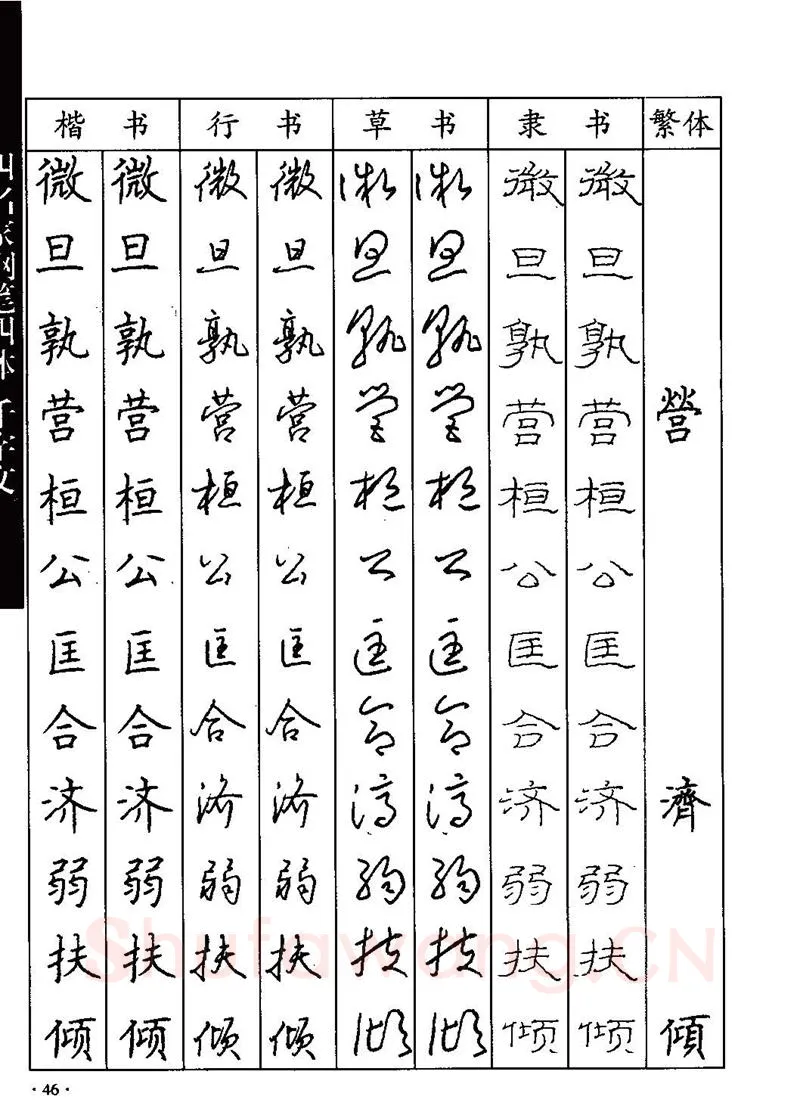 楷书 行书 草书 隶书 繁体
微 微 微 微 微 微 微 微
旦 旦 旦 旦 旦 旦 旦 旦
孰 孰 孰 孰 孰 孰 孰 孰
营 营 营 营 营 营 营 营 營
桓 桓 桓 桓 桓 桓 桓 桓
公 公 公 公 公 公 公 公
匡 匡 匡 匡 匡 匡 匡 匡
合 合 合 合 合 合 合 合
济 济 济 济 济 济 济 济 濟
弱 弱 弱 弱 弱 弱 弱 弱
扶 扶 扶 扶 扶 扶 扶 扶
倾 倾 倾 倾 倾 倾 倾 倾 傾
四名家钢笔四体千字文
Shufawang.CN
·46·